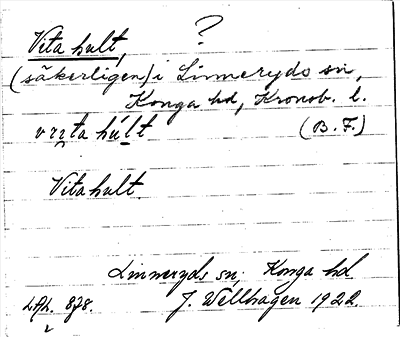 ?
Vita hult,
(säkerligen) i Linneryds sn,
Konga hd, Kronob. l.
húlt (B. F.)
Vitahult.
Linneryds sn, Konga hd
J. Wellhagen 1922.